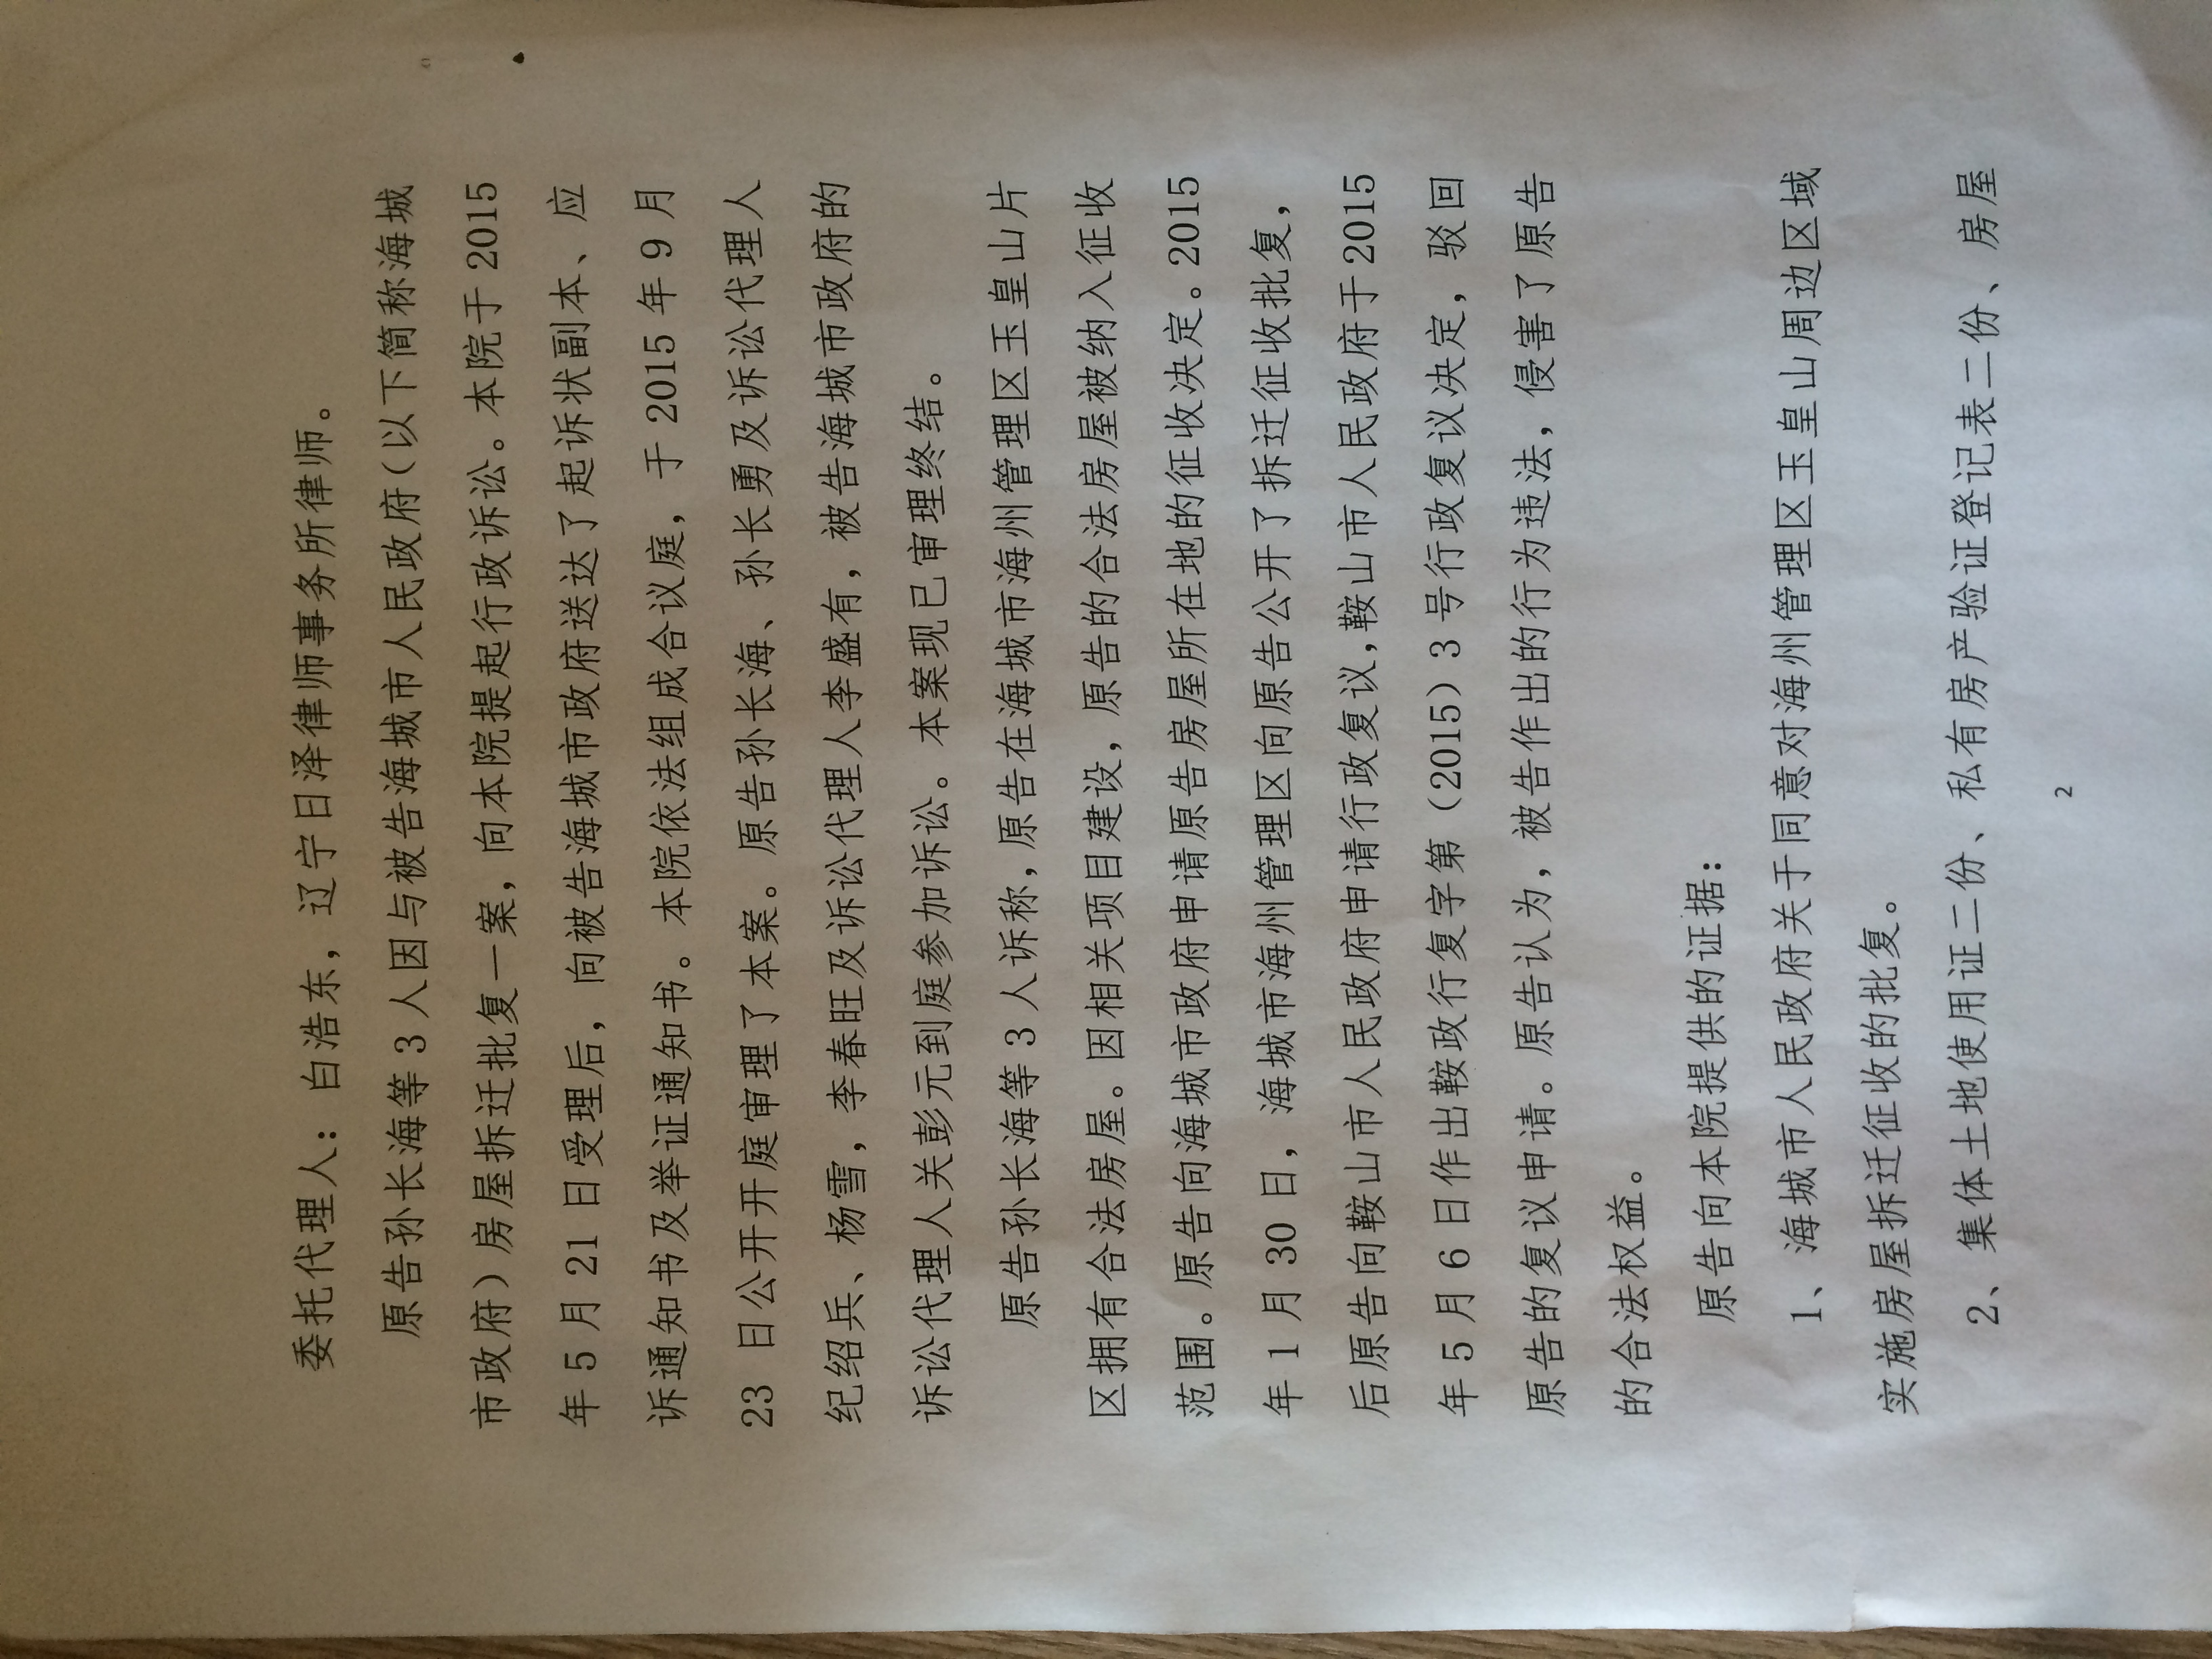 委托代理人：白浩东，辽宁日泽律师事务所律师。
原告孙长海等 3 人因与被告海城市人民政府（以下简称海城
市政府）房屋拆迁批复一案，向本院提起行政诉讼。本院于 2015
年 5 月 21 日受理后，向被告海城市政府送达了起诉状副本、应
诉通知书及举证通知书。本院依法组成合议庭，于 2015 年 9 月
23 日公开开庭审理了本案。原告孙长海、孙长勇及诉讼代理人
纪绍兵、杨雪，李春旺及诉讼代理人李盛有，被告海城市政府的
诉讼代理人关彭元到庭参加诉讼。本案现已审理终结。
原告孙长海等 3 人诉称，原告在海城市海州管理区玉皇山片
区拥有合法房屋。因相关项目建设，原告的合法房屋被纳入征收
范围。原告向海城市政府申请原告房屋所在地的征收决定。2015
年 1 月 30 日，海城市海州管理区向原告公开了拆迁征收批复，
后原告向鞍山市人民政府申请行政复议，鞍山市人民政府于 2015
年 5 月 6 日作出鞍政行复字第（2015）3 号行政复议决定，驳回
原告的复议申请。原告认为，被告作出的行为违法，侵害了原告
的合法权益。
原告向本院提供的证据：
1、海城市人民政府关于同意对海州管理区玉皇山周边区域
实施房屋拆迁征收的批复。
2、集体土地使用证二份、私有房产验证登记表二份、房屋
2